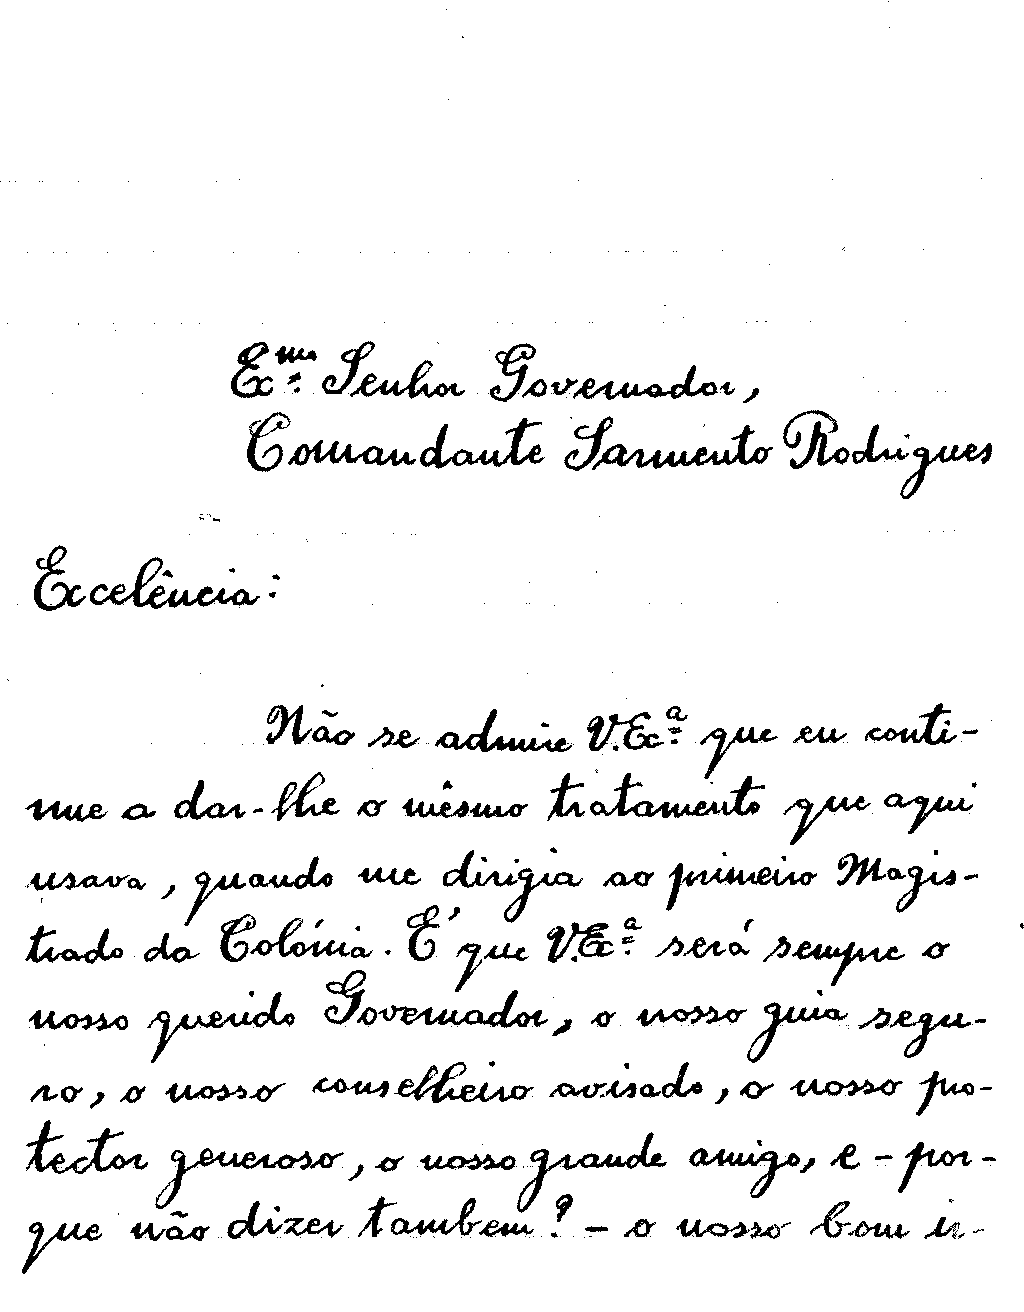 Ex.mo Senhor Governador,
Comandante Sarmento Rodrigues
Excelência:
Não se admire V.Ex.ª que eu conti-
nue a dar-lhe o mêsmo tratamento que aqui
usava, quando me dirigia ao primeiro Magis-
trado da Colónia. É que V.Ex.ª será sempre o
nosso querido Governador, o nosso guia segu-
ro, o nosso conselheiro avisado, o nosso pro-
tector generoso, o nosso grande amigo, e - por-
que não dizer tambem? - o nosso bom ir-